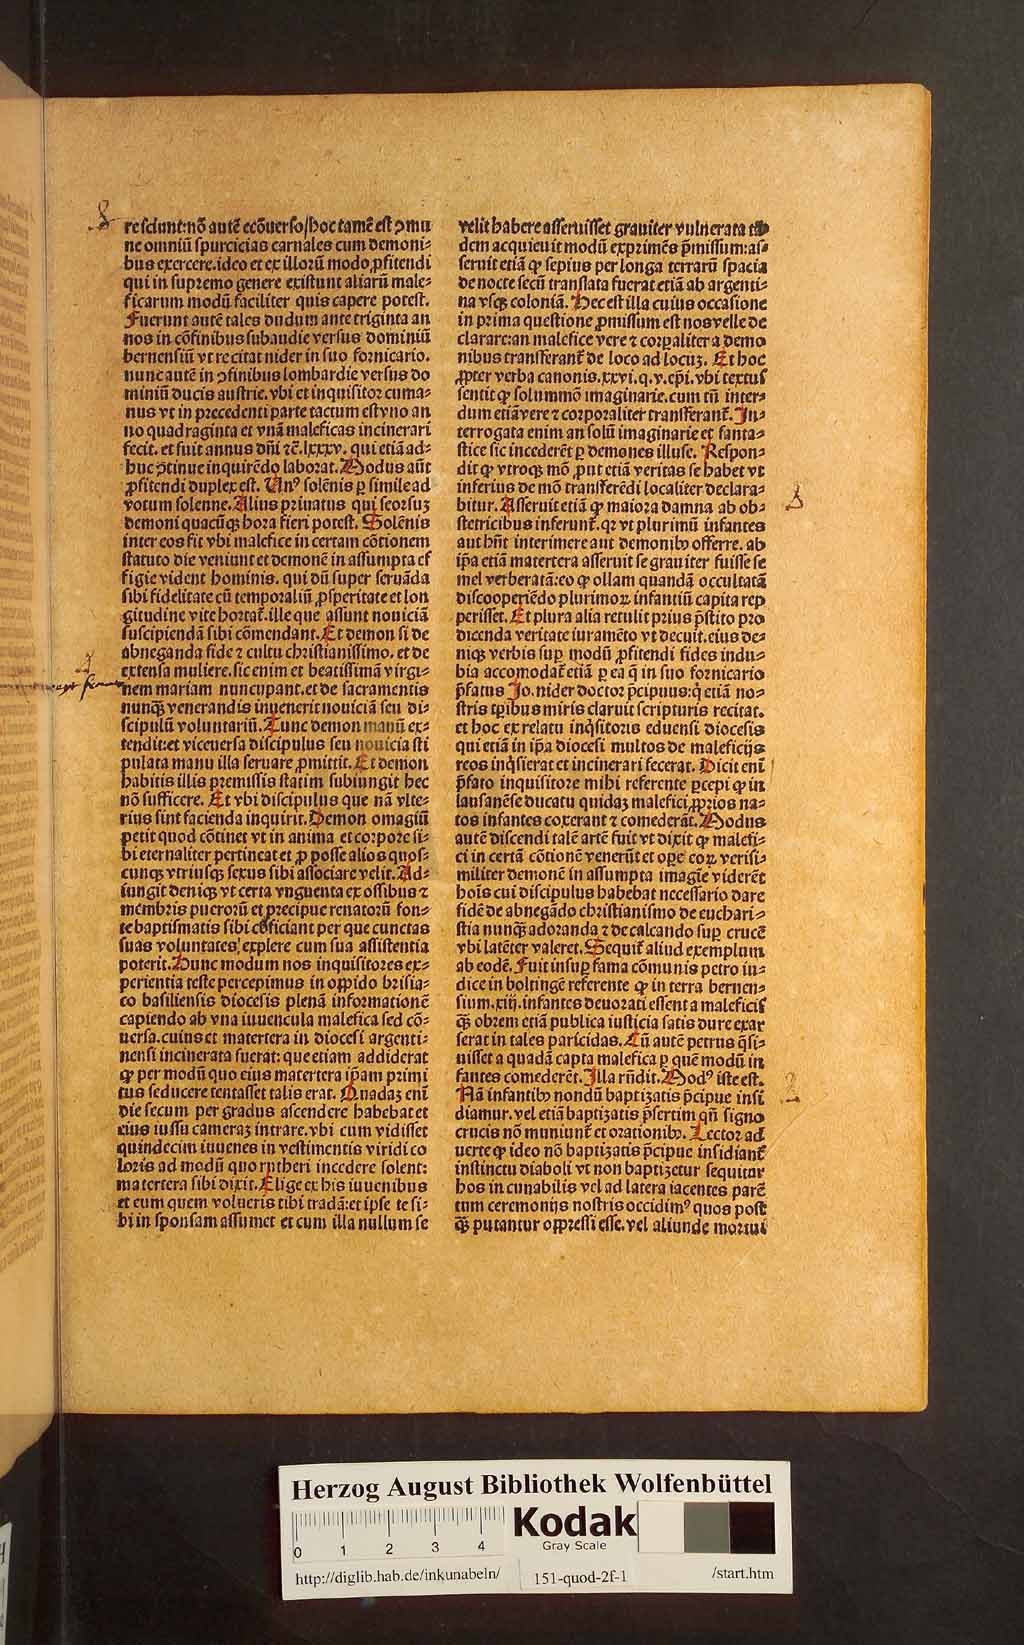 resciunt: nō autē ecōuerso/hoc tamē est ꝯmu
ne omniū spurcicias carnales cum demoni⸗
bus exercere. ideo et ex illorū modo ꝓfitendi
qui in supremo genere existunt aliarū male⸗
ficarum modū faciliter quis capere potest.
Fuerunt autē tales dudum ante triginta an
nos in cōfinibus subaudie versus dominiū
bernensiū vt recitat nider in suo fornicario.
nunc autē in ꝯfinibus lombardie versus do
miniū ducis austrie. vbi et inquisitor cuma⸗
nus vt in precedenti parte tactum est vno an
no quadraginta et vnā maleficas incinerari
fecit. et fuit annus dn̄i ⁊ē. lxxxv. qui etiā ad⸗
huc ꝯtinue inquirēdo laborat. Modus aūt
ꝓfitendi duplex est. Unꝰ solēnis ꝑ simile ad
votum solenne. Alius priuatus qui seorsuꝫ
demoni quacūqꝫ hora fieri potest. Solēnis
inter eos fit vbi malefice in certam cōtionem
statuto die veniunt et demonē in assumpta ef
figie vident hominis. qui dū super seruāda
sibi fidelitate cū temporaliū ꝓsperitate et lon
gitudine vite hortat᷑. ille que assunt nouiciā
suscipiendā sibi cōmendant. Et demon si de
abneganda fide ⁊ cultu christianissimo. et de
extensa muliere. sic enim et beatissimā virgi⸗
nem mariam nuncupant. et de sacramentis
nunqꝫ venerandis inuenerit nouiciā seu di⸗
scipulū voluntariū. Tunc demon manū ex⸗
tendit: et viceuersa discipulus seu nouicia sti
pulata manu illa seruare ꝓmittit. Et demon
habitis illis premissis statim subiungit hec
nō sufficere. Et vbi discipulus que nā vlte⸗
rius sint facienda inquirit. Demon omagiū
petit quod cōtinet vt in anima et corpore si⸗
bi eternaliter pertineat et ꝓ posse alios quos⸗
cunqꝫ vtriusqꝫ sexus sibi associare velit. Ad⸗
iungit deniqꝫ vt certa vnguenta ex ossibus ⁊
membris puerorū et precipue renatorū fon⸗
te baptismatis sibi cōficiant per que cunctas
suas voluntates explere cum sua assistentia
poterit. Hunc modum nos inquisitores ex⸗
perientia teste percepimus in oppido brisia⸗
co basiliensis diocesis plenā informationē
capiendo ab vna iuuencula malefica sed cō⸗
uersa. cuius et matertera in diocesi argenti⸗
nensi incinerata fuerat: que etiam addiderat
ꝙ per modū quo eius matertera ip̄am primi
tus seducere tentasset talis erat. Quadaꝫ enī
die secum per gradus ascendere habebat et
eius iussu cameraꝫ intrare. vbi cum vidisset
quindecim iuuenes in vestimentis viridi co
loris ad modū quo rutheri incedere solent:
matertera sibi dixit. Elige ex his iuuenibus
et eum quem volueris tibi tradā: et ipse te si⸗
bi in sponsam assumet et cum illa nullum se
velit habere asseruisset grauiter vulnerata
dem acquieuit modū exprimēs p̄missum: as⸗
seruit etiā ꝙ sepius per longa terrarū spacia
de nocte secū translata fuerat etiā ab argenti⸗
na vsqꝫ coloniā. Hec est illa cuius occasione
in prima questione ꝓmissum est nos velle de
clarare: an malefice vere ⁊ corporaliter a demo
nibus transferant᷑ de loco ad locuꝫ. Et hoc
ꝓpter verba canonis. xxvi. q. v. ep̄i. vbi textus
sentit ꝙ solummō imaginarie. cum tn̄ inter⸗
dum etiā vere ⁊ corporaliter transferant᷑. In⸗
terrogata enim an solū imaginarie et fanta⸗
stice sic incederēt ꝑ demones illuse. Respon⸗
dit ꝙ vtroqꝫ mō ꝓut etiā veritas se habet vt
inferius de mō transferēdi localiter declara⸗
bitur. Asseruit etiā ꝙ maiora damna ab ob⸗
stetricibus inferunt᷑. qꝛ vt plurimū infantes
aut hn̄t interimere aut demonibꝰ offerre. ab
ip̄a etiā matertera asseruit se grauiter fuisse se
mel verberatā: eo ꝙ ollam quandā occultatā
discooperiēdo plurimoꝝ infantiū capita rep
perisset. Et plura alia retulit prius p̄stito pro
dicenda veritate iuramēto vt decuit. eius de⸗
niqꝫ verbis suꝑ modū ꝓfitendi fides indu⸗
bia accomodat᷑ etiā ꝑ ea q̄ in suo fornicario
p̄fatus Jo. nider doctor p̄cipuus: q̇ etiā no⸗
stris tꝑibus miris claruit scripturis recitat.
et hoc ex relatu inq̇sitoris eduensi diocesis
qui etiā in ip̄a diocesi multos de maleficijs
reos inq̇sierat et incinerari fecerat. Dicit enī
p̄fato inquisitore mihi referente ꝑcepi ꝙ in
lausanēse ducatu quidaꝫ malefici ꝓprios na⸗
tos infantes coxerant ⁊ comederāt. Modus
autē discendi talē artē fuit vt dixit ꝙ malefi⸗
ci in certā cōtionē venerūt et ope eoꝝ verisi⸗
militer demonē in assumpta imagīe viderēt
hoīs cui discipulus habebat necessario dare
fidē de abnegādo christianismo de euchari⸗
stia nunqꝫ adoranda ⁊ de calcando suꝑ crucē
vbi latēter valeret. Sequit᷑ aliud exemplum
ab eodē. Fuit insuꝑ fama cōmunis petro iu⸗
dice in boltingē referente ꝙ in terra bernen⸗
sium. xiij. infantes deuorati essent a maleficis
qꝫ obrem etiā publica iusticia satis dure exar
serat in tales paricidas. Cū autē petrus q̄si⸗
uisset a quadā capta malefica ꝑ quē modū in
fantes comederēt. Illa rn̄dit. Modꝰ iste est.
Nā infantibꝰ nondū baptizatis p̄cipue insi
diamur. vel etiā baptizatis p̄sertim qn̄ signo
crucis nō muniunt᷑ et orationibꝰ. Lector ad
uerte ꝙ ideo nō baptizatis p̄cipue insidiant᷑
instinctu diaboli vt non baptizetur sequitur
hos in cunabilis vel ad latera iacentes parē
tum ceremonijs nostris occidimꝰ quos post
qꝫ putantur oppressi esse. vel aliunde mortui
Herzog August Bibliothek Wolfenbüttel
0 1 2 3 4
Kodak
Gray Scale
http://diglib.hab.de/inkunabeln/
151-quod-2f-1
/start.htm